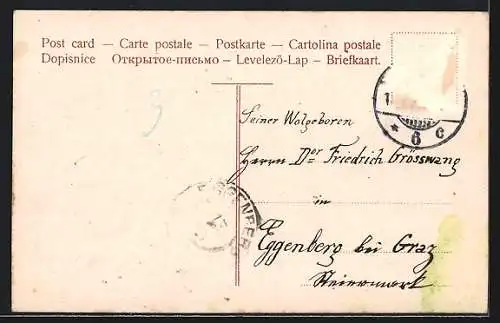 Post card – Carte postale – Postkarte – Cartolina postale
Dopisnice Открытое-письмо – Levelező-Lap – Briefkaart.
* 6 c
Seiner Wolgeboren
Herrn Der Friedrich Grösswang
in
EGGENBERG
Eggenberg bei Graz
Steiermark